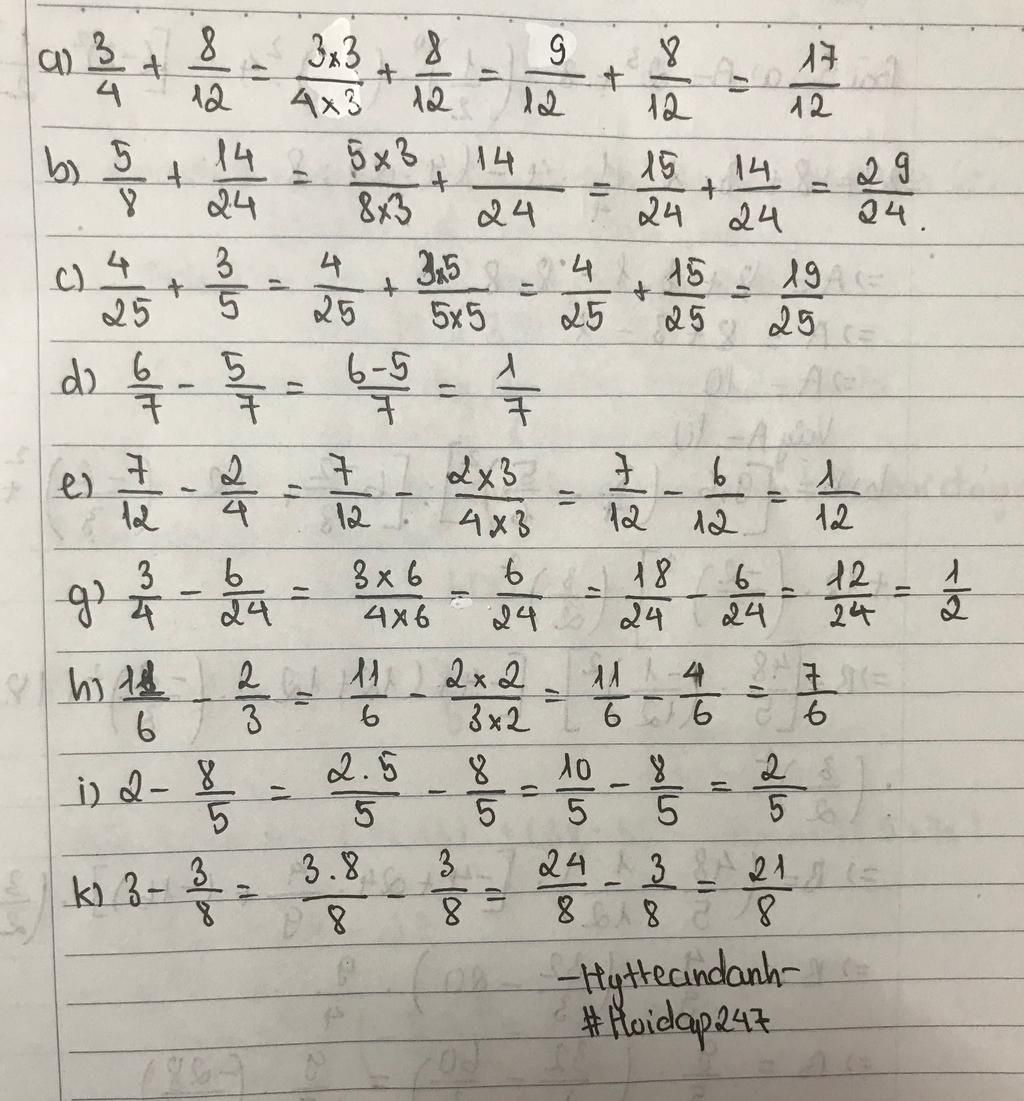 a) 3/4 + 8/12 = 3x3/4x3 + 8/12 = 9/12 + 8/12 = 17/12
b) 5/8 + 14/24 = 5x3/8x3 + 14/24 = 15/24 + 14/24 = 29/24.
c) 4/25 + 3/5 = 4/25 + 3x5/5x5 = 4/25 + 15/25 = 19/25
d) 6/7 - 5/7 = 6-5/7 = 1/7
e) 7/12 - 2/4 = 7/12 - 2x3/4x3 = 7/12 - 6/12 = 1/12
g) 3/4 - 6/24 = 3x6/4x6 = 6/24 = 18/24 - 6/24 = 12/24 = 1/2
h) 11/6 - 2/3 = 11/6 - 2x2/3x2 = 11/6 - 4/6 = 7/6
i) 2 - 8/5 = 2.5/5 - 8/5 = 10/5 - 8/5 = 2/5
k) 3 - 3/8 = 3.8/8 - 3/8 = 24/8 - 3/8 = 21/8
#Hoidap247